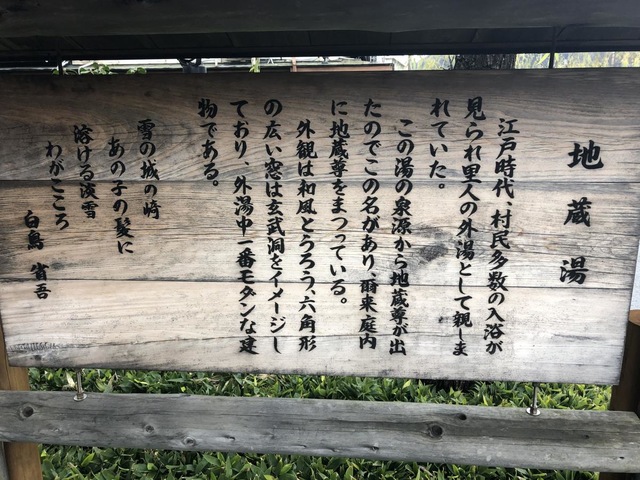 地蔵湯
江戸時代、村民多数の入浴が
見られ里人の外湯として親しま
れていた。
この湯の泉源から地蔵尊が出
たのでこの名があり、爾来庭内
に地蔵尊をまつっている。
外観は和風とうろう、六角形
の広い窓は玄武洞をイメージし
ており、外湯中一番モダンな建
物である。
雪の城の崎
あの子の髪に
溶ける淡雪
わがこころ
白鳥 省吾